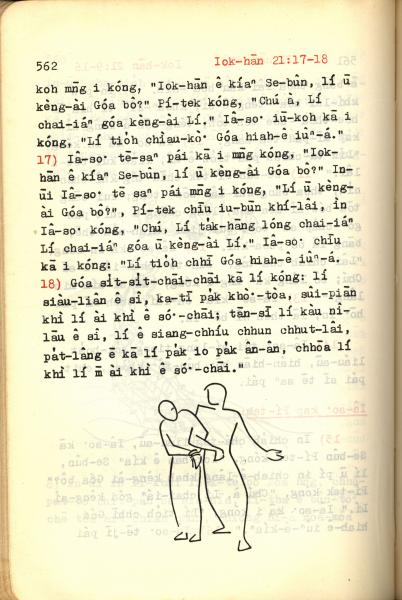 562 Iok-hān 21:17-18
koh mn̄g i kóng, "Iok-hān ê kíaⁿ Se-bûn, lí ū
kèng-ài Góa bô?" Pí-tek kóng, "Chú à, Lí
chai-iáⁿ góa kèng-ài Lí." Iâ-so· iū-koh kā i
kóng, "Lí tio̍h chiàu-kò· Góa hiah-ê iûⁿ-á."
17) Iâ-so· tē-saⁿ pái kā i mn̄g kóng, "Iok-
hān ê kíaⁿ Se-bûn, lí ū kèng-ài Góa bô?" In-
ūi Iâ-so· tē saⁿ pái mn̄g i kóng, "Lí ū kèng-
ài Góa bô?", Pí-tek chīu iu-būn khí-lâi, ìn
Iâ-so· kóng, "Chú, Lí ta̍k-hāng lóng chai-iáⁿ
Lí chai-iáⁿ góa ū kèng-ài Lí." Iâ-so· chīu
kā i kóng: "Lí tio̍h chhī Góa hiah-ê iûⁿ-á.
18) Góa si̍t-si̍t-chāi-chāi kā lí kóng: lí
siàu-liân ê sî, ka-tī pa̍k khò·-tòa, sûi-piān
khì lí ài khì ê só·-chāi; tān-sī lí kàu nî-
lāu ê sî, lí ē siang-chhíu chhun chhut-lâi,
pa̍t-lâng ē kā lí pa̍k io pa̍k ân-ân, chhōa lí
khì lí m̄ ài khì ê só·-chāi."